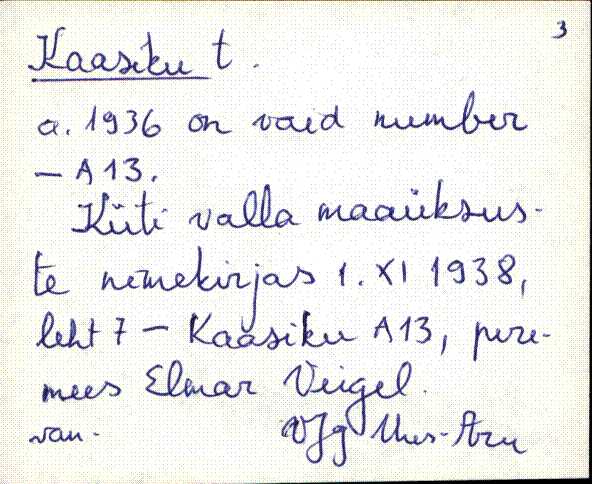 3
Kaasiku t.
a. 1936 on vaid number
– A 13.
Küti valla maaüksus-
te nimekirjas 1. XI 1938,
leht 7 – Kaasiku A13, pere-
mees Elmar Veigel.
van. VJg Uus-Aru